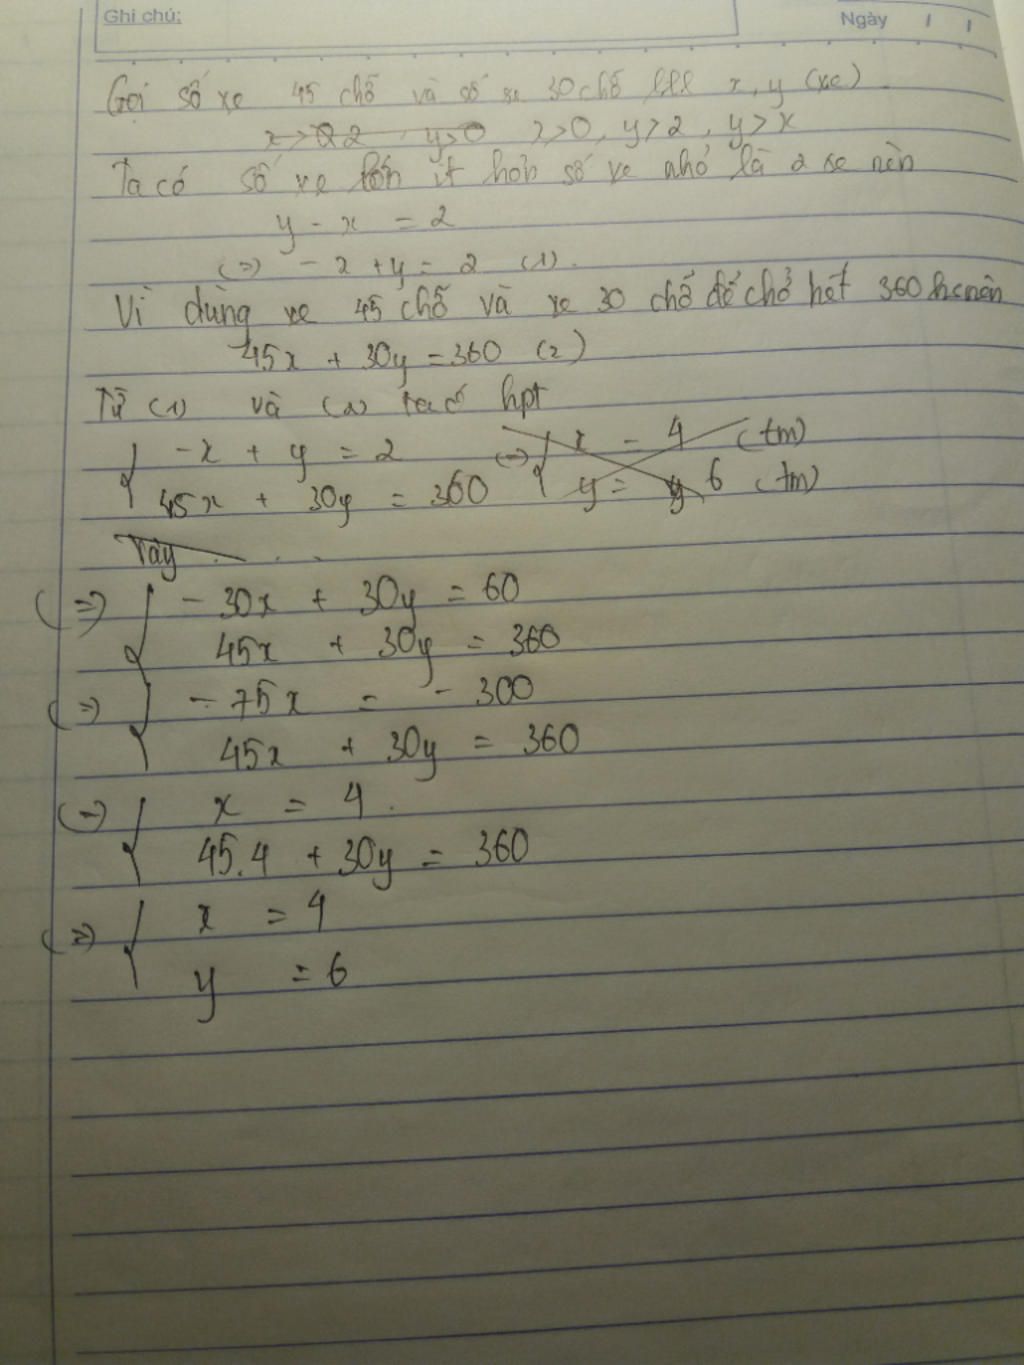 Ghi chú:
Ngày / /
Gọi số xe 45 chỗ và số xe 30 chỗ lll x, y (xe).
x > 0 2 y>0 x>0, y>2, y>x
Ta có số xe lớn ít hơn số xe nhỏ là 2 xe nên
y - x = 2
(=) - x + y = 2 (1).
Vì dùng xe 45 chỗ và xe 30 chỗ để chở hết 360 hs nên
45x + 30y = 360 (2)
Từ (1) và (2) ta có hpt
{ -x + y = 2 (=) { x = 4 (tm)
45x + 30y = 360 y = 6 (tm)
Vậy . . .
(=) { - 30x + 30y = 60
45x + 30y = 360
(=) { - 75x = - 300
45x + 30y = 360
(=) { x = 4.
45.4 + 30y = 360
(=) { x = 4
y = 6